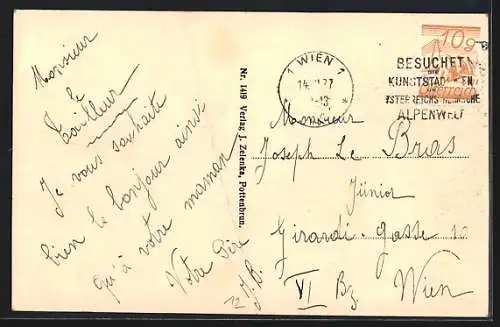 Monsieur
Le
Tailleur
Je vous souhaite
bien le bonjour ainsi
qu'à votre maman
Votre Père
J. B.
Nr. 149 Verlag J. Zelenka, Pottenbrun.
1 WIEN 1
BESUCHET
DIE
KUNSTSTADT WIEN
UND
ÖSTERREICHS HERRLICHE
ALPENWELT
10g
Monsieur
Joseph Le Bras
Junior
Girardi-gasse 10
VI Bz Wien